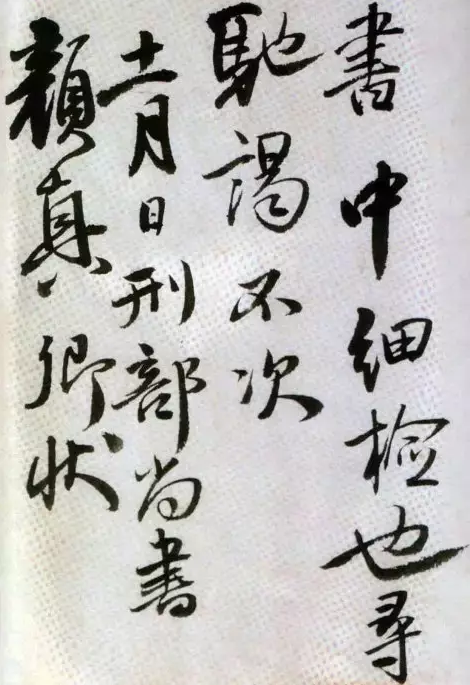 書中细檢也尋
馳謁不次
十一月日刑部尚書
顔真卿状